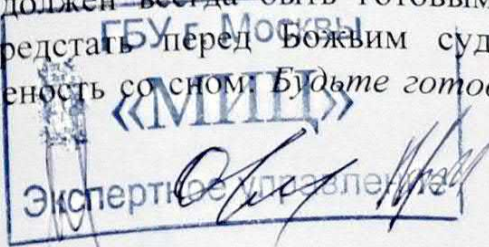 должен всегда быть готовым
ГБУ г. Москвы
редстать перед Божьим суд
еность со сном. Будьте готов
«МИЦ»
Экспертное управление